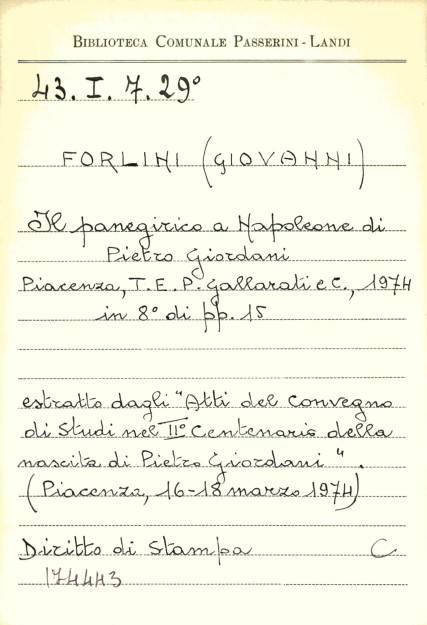 BIBLIOTECA COMUNALE PASSERINI - LANDI
43. I. 7. 29°
FORLINI (GIOVANNI)
Il panegirico a Napoleone di
Pietro Giordani
Piacenza, T. E. P. Gallarati e C., 1974
in 8° di pp. 15
estratto dagli "Atti del Convegno
di Studi nel II° Centenario della
nascita di Pietro Giordani".
(Piacenza, 16-18 marzo 1974)
Diritto di stampa C
174443